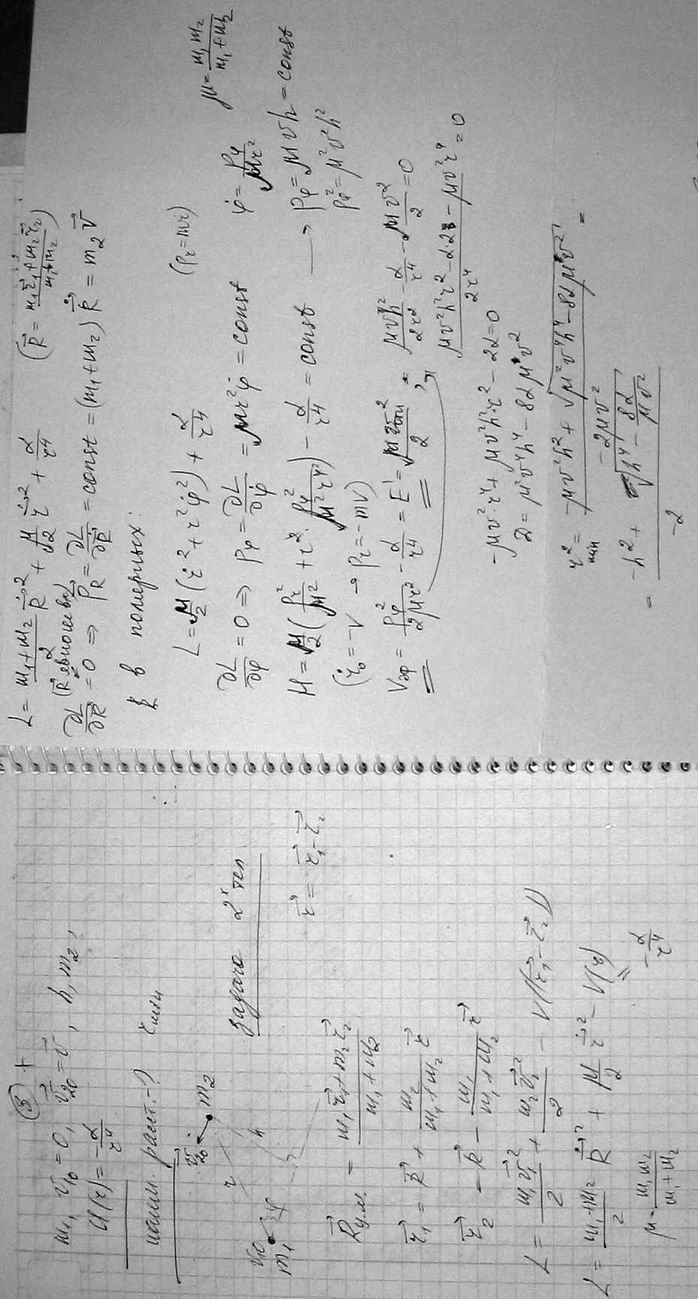 ③ +
m₁, v₁₀ = 0, v⃗₂₀ = v⃗, h, m₂,
U(r) = -α/r⁴
наим. расст.-? r min
v⃗₂₀ m₂
r h
m₁ φ
задача 2ˣ тел
r⃗ = r⃗₁ - r⃗₂
R⃗ц.м. = (m₁r⃗₁ + m₂r⃗₂)/(m₁ + m₂)
r⃗₁ = R⃗ + m₂/(m₁ + m₂) r⃗
r⃗₂ = R⃗ - m₁/(m₁ + m₂) r⃗
L = m₁v⃗₁²/2 + m₂v⃗₂²/2 - V(|r⃗₁ - r⃗₂|)
L = (m₁ + m₂)/2 Ṙ⃗² + μ/2 ṙ⃗² - V(r)
μ = m₁m₂/(m₁ + m₂) -α/r⁴
L = (m₁ + m₂)/2 Ṙ⃗² + μ/2 ṙ⃗² + α/r⁴ (R⃗ = (m₁r⃗₁ + m₂r⃗₂)/(m₁ + m₂))
∂L/∂R⃗ = 0 ⇒ p_R = ∂L/∂Ṙ⃗ = const = (m₁ + m₂)Ṙ⃗ = m₂v⃗
в полярных:
L = μ/2 (ṙ² + r²φ̇²) + α/r⁴ (p_r = mṙ)
∂L/∂φ = 0 ⇒ p_φ = ∂L/∂φ̇ = μr²φ̇ = const φ̇ = p_φ/μr² μ = m₁m₂/(m₁ + m₂)
H = μ/2 (p_r²/μ² + r² · p_φ²/μ²r⁴) - α/r⁴ = const → p_φ = μvh = const
(ṙ₀ = -v → p_r = -mv) p_φ² = μ²v²h²
Vэф = p_φ²/2μr² - α/r⁴ = E = μv²/2, μv²h²/2r² - α/r⁴ - μv²/2 = 0
(μv²h²r² - 2α - μv²r⁴)/2r⁴ = 0
-μv²r⁴ + μv²h²r² - 2α = 0
D = μ²v⁴h⁴ - 8αμv²
r²min = (-μv²h² + √(μ²v⁴h⁴ - 8αμv²))/(-2μv²) =
= (-h² + √(h⁴ - 8α/μv²))/(-2)